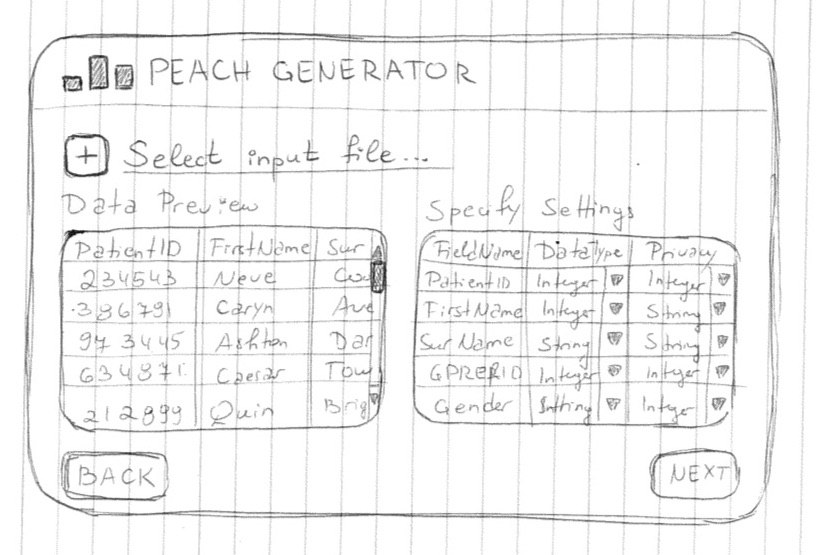 PEACH GENERATOR
+ Select input file...
Data Preview
Specify Settings
PatientID FirstName Sur
234543 Neve
386791 Caryn Ave
973445 Ashton Dar
634871 Caesar Tow
212899 Quin Brig
FieldName DataType Privacy
PatientID Integer Integer
FirstName Integer String
SurName String String
GPRERID Integer Integer
Gender Integer
BACK
NEXT